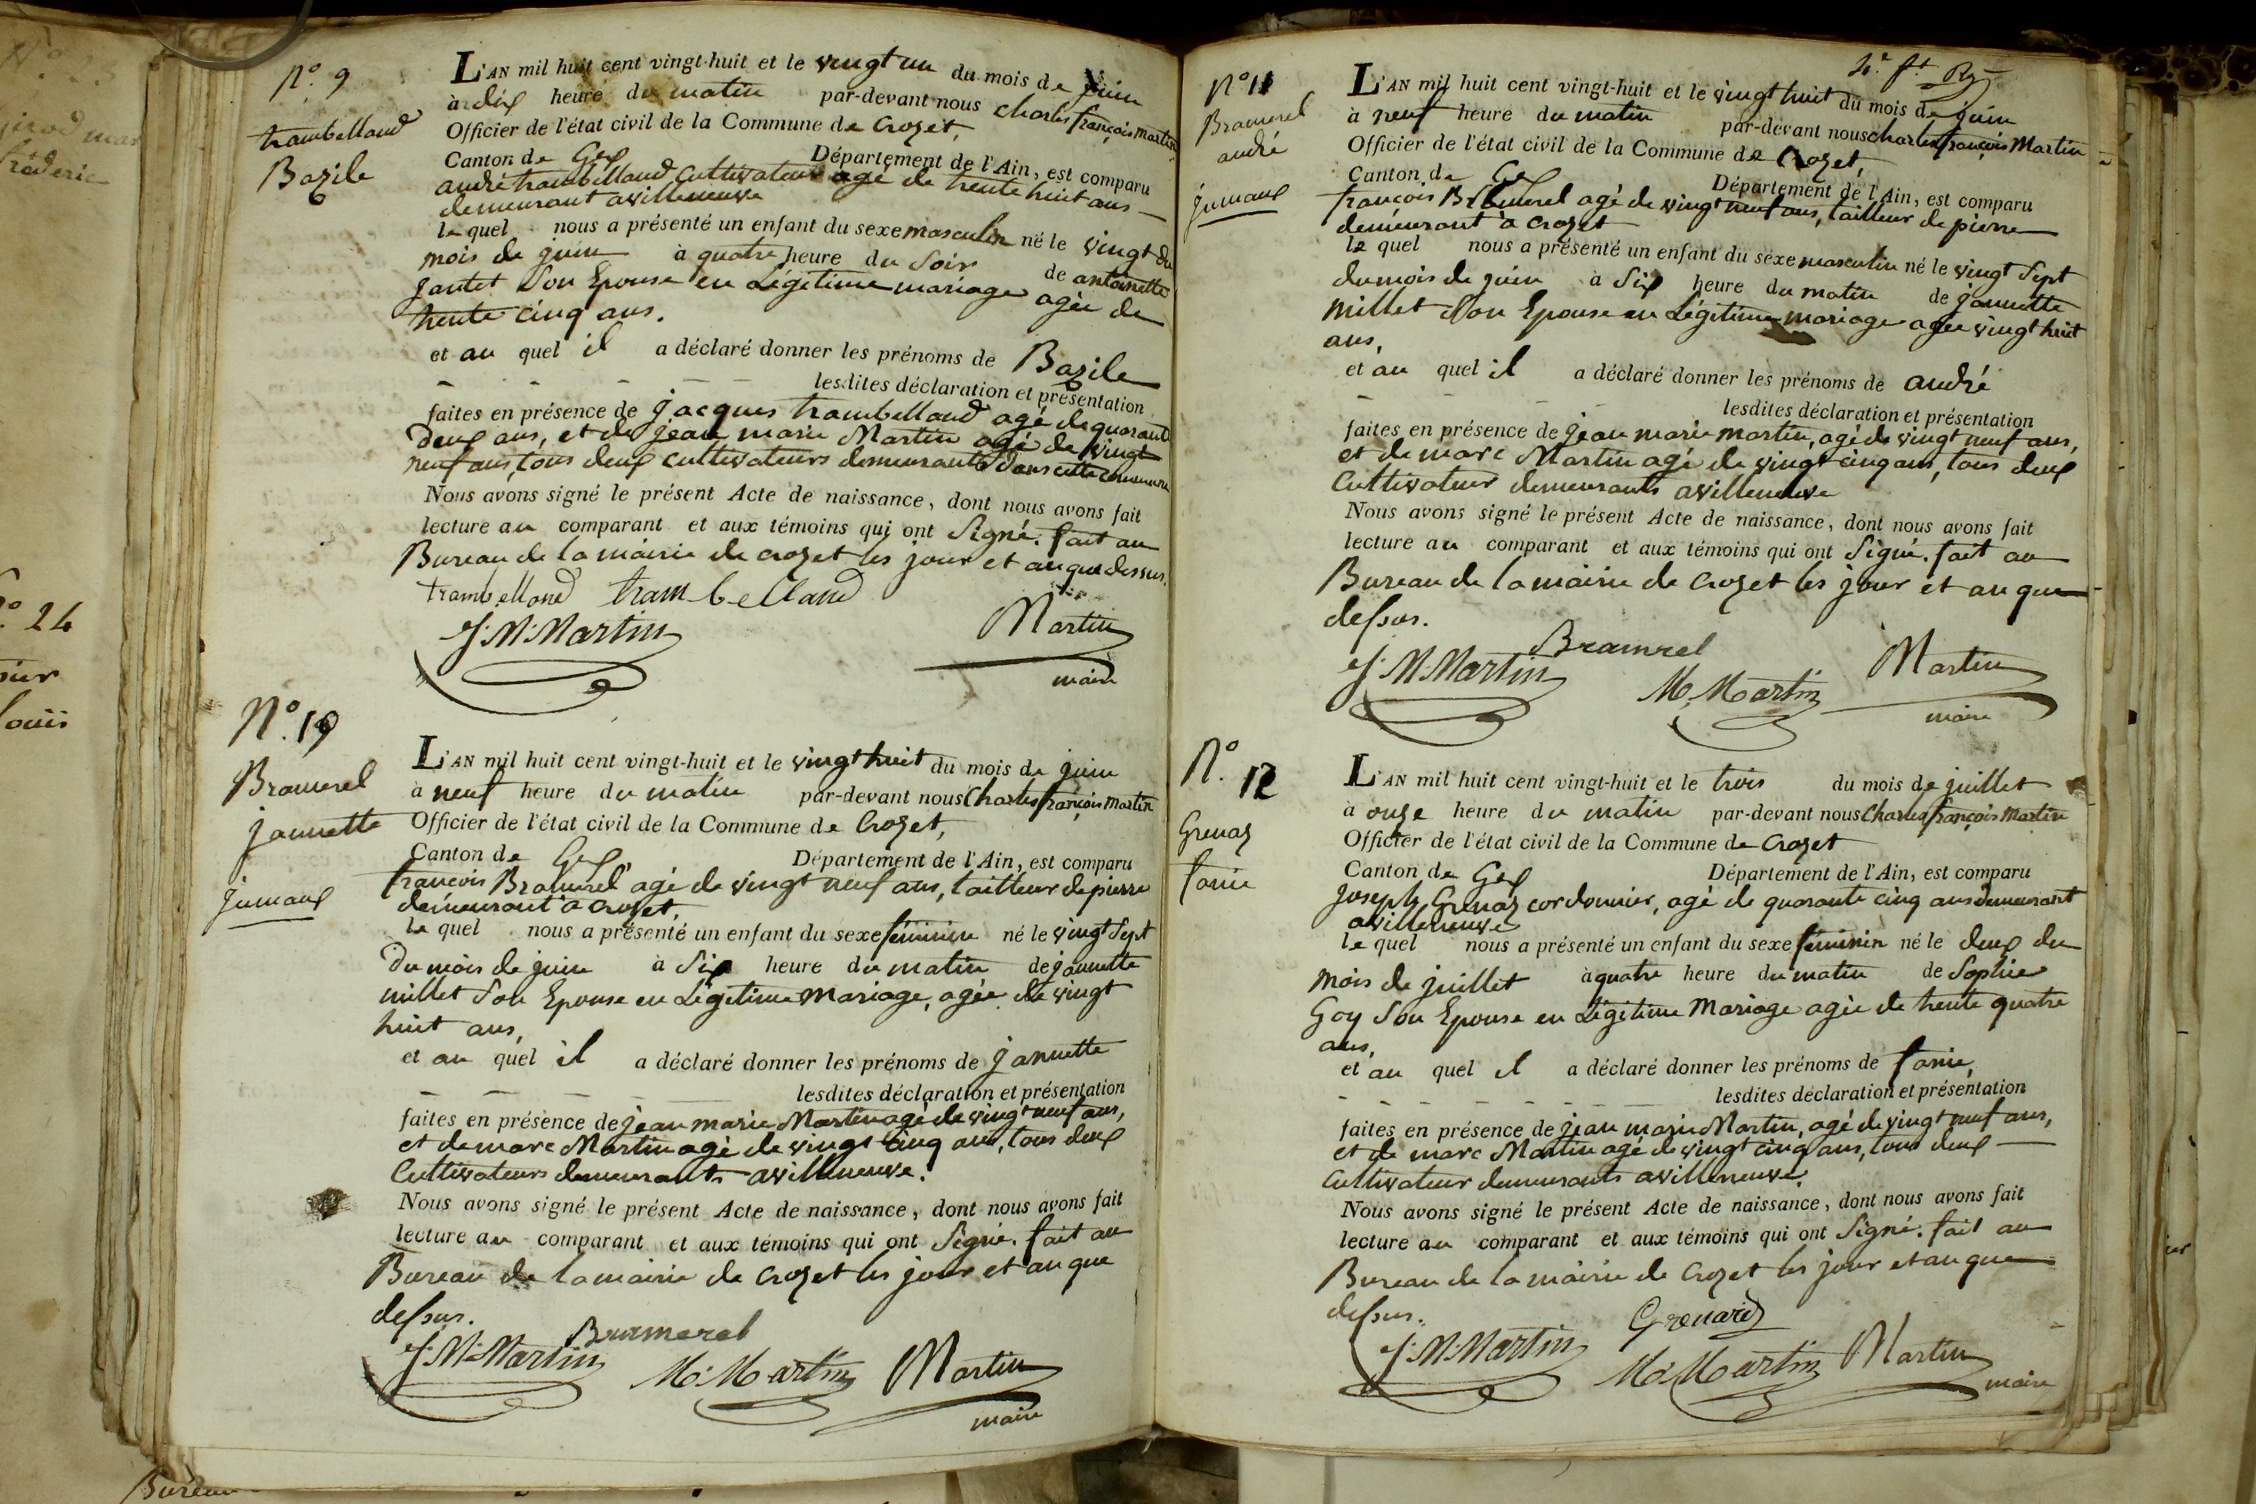 N.° 9
trambelland
Bazile
L'AN mil huit cent vingt-huit et le vingt un du mois de juin
à dix heure du matin par-devant nous charles françois martin
Officier de l'état civil de la Commune de Crozet,
Canton de Gex Département de l'Ain, est comparu
andré trambelland Cultivateur agé de trente huit ans
demeurant a villeneuve
le quel nous a présenté un enfant du sexe masculin né le vingt du
mois de juin à quatre heure du Soir de antoinette
jantet Son Epouse en Légitime mariage agée de
trente cinq ans.
et au quel il a déclaré donner les prénoms de Bazile
lesdites déclaration et présentation
faites en présence de jacques trambelland agé de quarante
deux ans, et de jean marie Martin agé de vingt
neuf ans, tous deux cultivateurs demeurants dans cette commune
Nous avons signé le présent Acte de naissance, dont nous avons fait
lecture au comparant et aux témoins qui ont Signé. fait au
Bureau de la mairie de crozet les jour et an que dessus.
trambelland trambelland
J. M. Martin Martin
maire
N.° 10
Bramerel
jannette
jumaux
L'AN mil huit cent vingt-huit et le vingt huit du mois de juin
à neuf heure du matin par-devant nous Charles françois Martin
Officier de l'état civil de la Commune de Crozet,
Canton de Gex, Département de l'Ain, est comparu
françois Bramerel agé de vingt neuf ans, tailleur de pierre
demeurant a crozet,
le quel nous a présenté un enfant du sexe féminin né le vingt Sept
Du mois de juin à Six heure du matin de jannette
millet Son Epouse en Légitime Mariage, agée de vingt
huit ans,
et au quel il a déclaré donner les prénoms de jannette
lesdites déclaration et présentation
faites en présence de jean marie Martin agé de vingt neuf ans,
et de marc Martin agé de vingt cinq ans, tous deux
Cultivateurs demeurants a villeneuve.
Nous avons signé le présent Acte de naissance, dont nous avons fait
lecture au comparant et aux témoins qui ont Signé. fait au
Bureau de la mairie de crozet les jour et an que
dessus.
Bramerel
J. M. Martin M. Martin Martin
maire
N° 11
Bramerel
andré
jumaux
L'AN mil huit cent vingt-huit et le vingt huit du mois de juin
à neuf heure du matin par-devant nous charles françois Martin
Officier de l'état civil de la Commune de Crozet,
Canton de Gex Département de l'Ain, est comparu
françois Bramerel agé de vingt neuf ans, tailleur de pierre
demeurant a crozet
le quel nous a présenté un enfant du sexe masculin né le vingt Sept
du mois de juin à Six heure du matin de jannette
millet Son Epouse en Légitime mariage agée vingt huit
ans,
et au quel il a déclaré donner les prénoms de andré
lesdites déclaration et présentation
faites en présence de jean marie martin, agé de vingt neuf ans,
et de marc Martin agé de vingt cinq ans, tous deux
Cultivateur demeurants a villeneuve
Nous avons signé le présent Acte de naissance, dont nous avons fait
lecture au comparant et aux témoins qui ont Signé. fait au
Bureau de la mairie de crozet les jour et an que
dessus.
Bramrel
J. M. Martin M. Martin Martin
maire
N.° 12
Grenaz
fanie
L'AN mil huit cent vingt-huit et le trois du mois de juillet
à onze heure du matin par-devant nous Charles françois Martin
Officier de l'état civil de la Commune de Crozet
Canton de Gex Département de l'Ain, est comparu
joseph Grenaz cordonnier, agé de quarante cinq ans demeurant
a villeneuve
le quel nous a présenté un enfant du sexe féminin né le deux du
mois de juillet à quatre heure du matin de Sophie
Goy Son Epouse en Légitime Mariage agée de trente quatre
ans,
et au quel il a déclaré donner les prénoms de fanie,
lesdites déclaration et présentation
faites en présence de jean marie Martin, agé de vingt neuf ans,
et de marc Martin agé de vingt cinq ans, tous deux
Cultivateur demeurants a villeneuve.
Nous avons signé le présent Acte de naissance, dont nous avons fait
lecture au comparant et aux témoins qui ont Signé. fait au
Bureau de la mairie de Crozet les jour et an que
dessus.
Grenard
J. M. Martin M. Martin Martin
maire